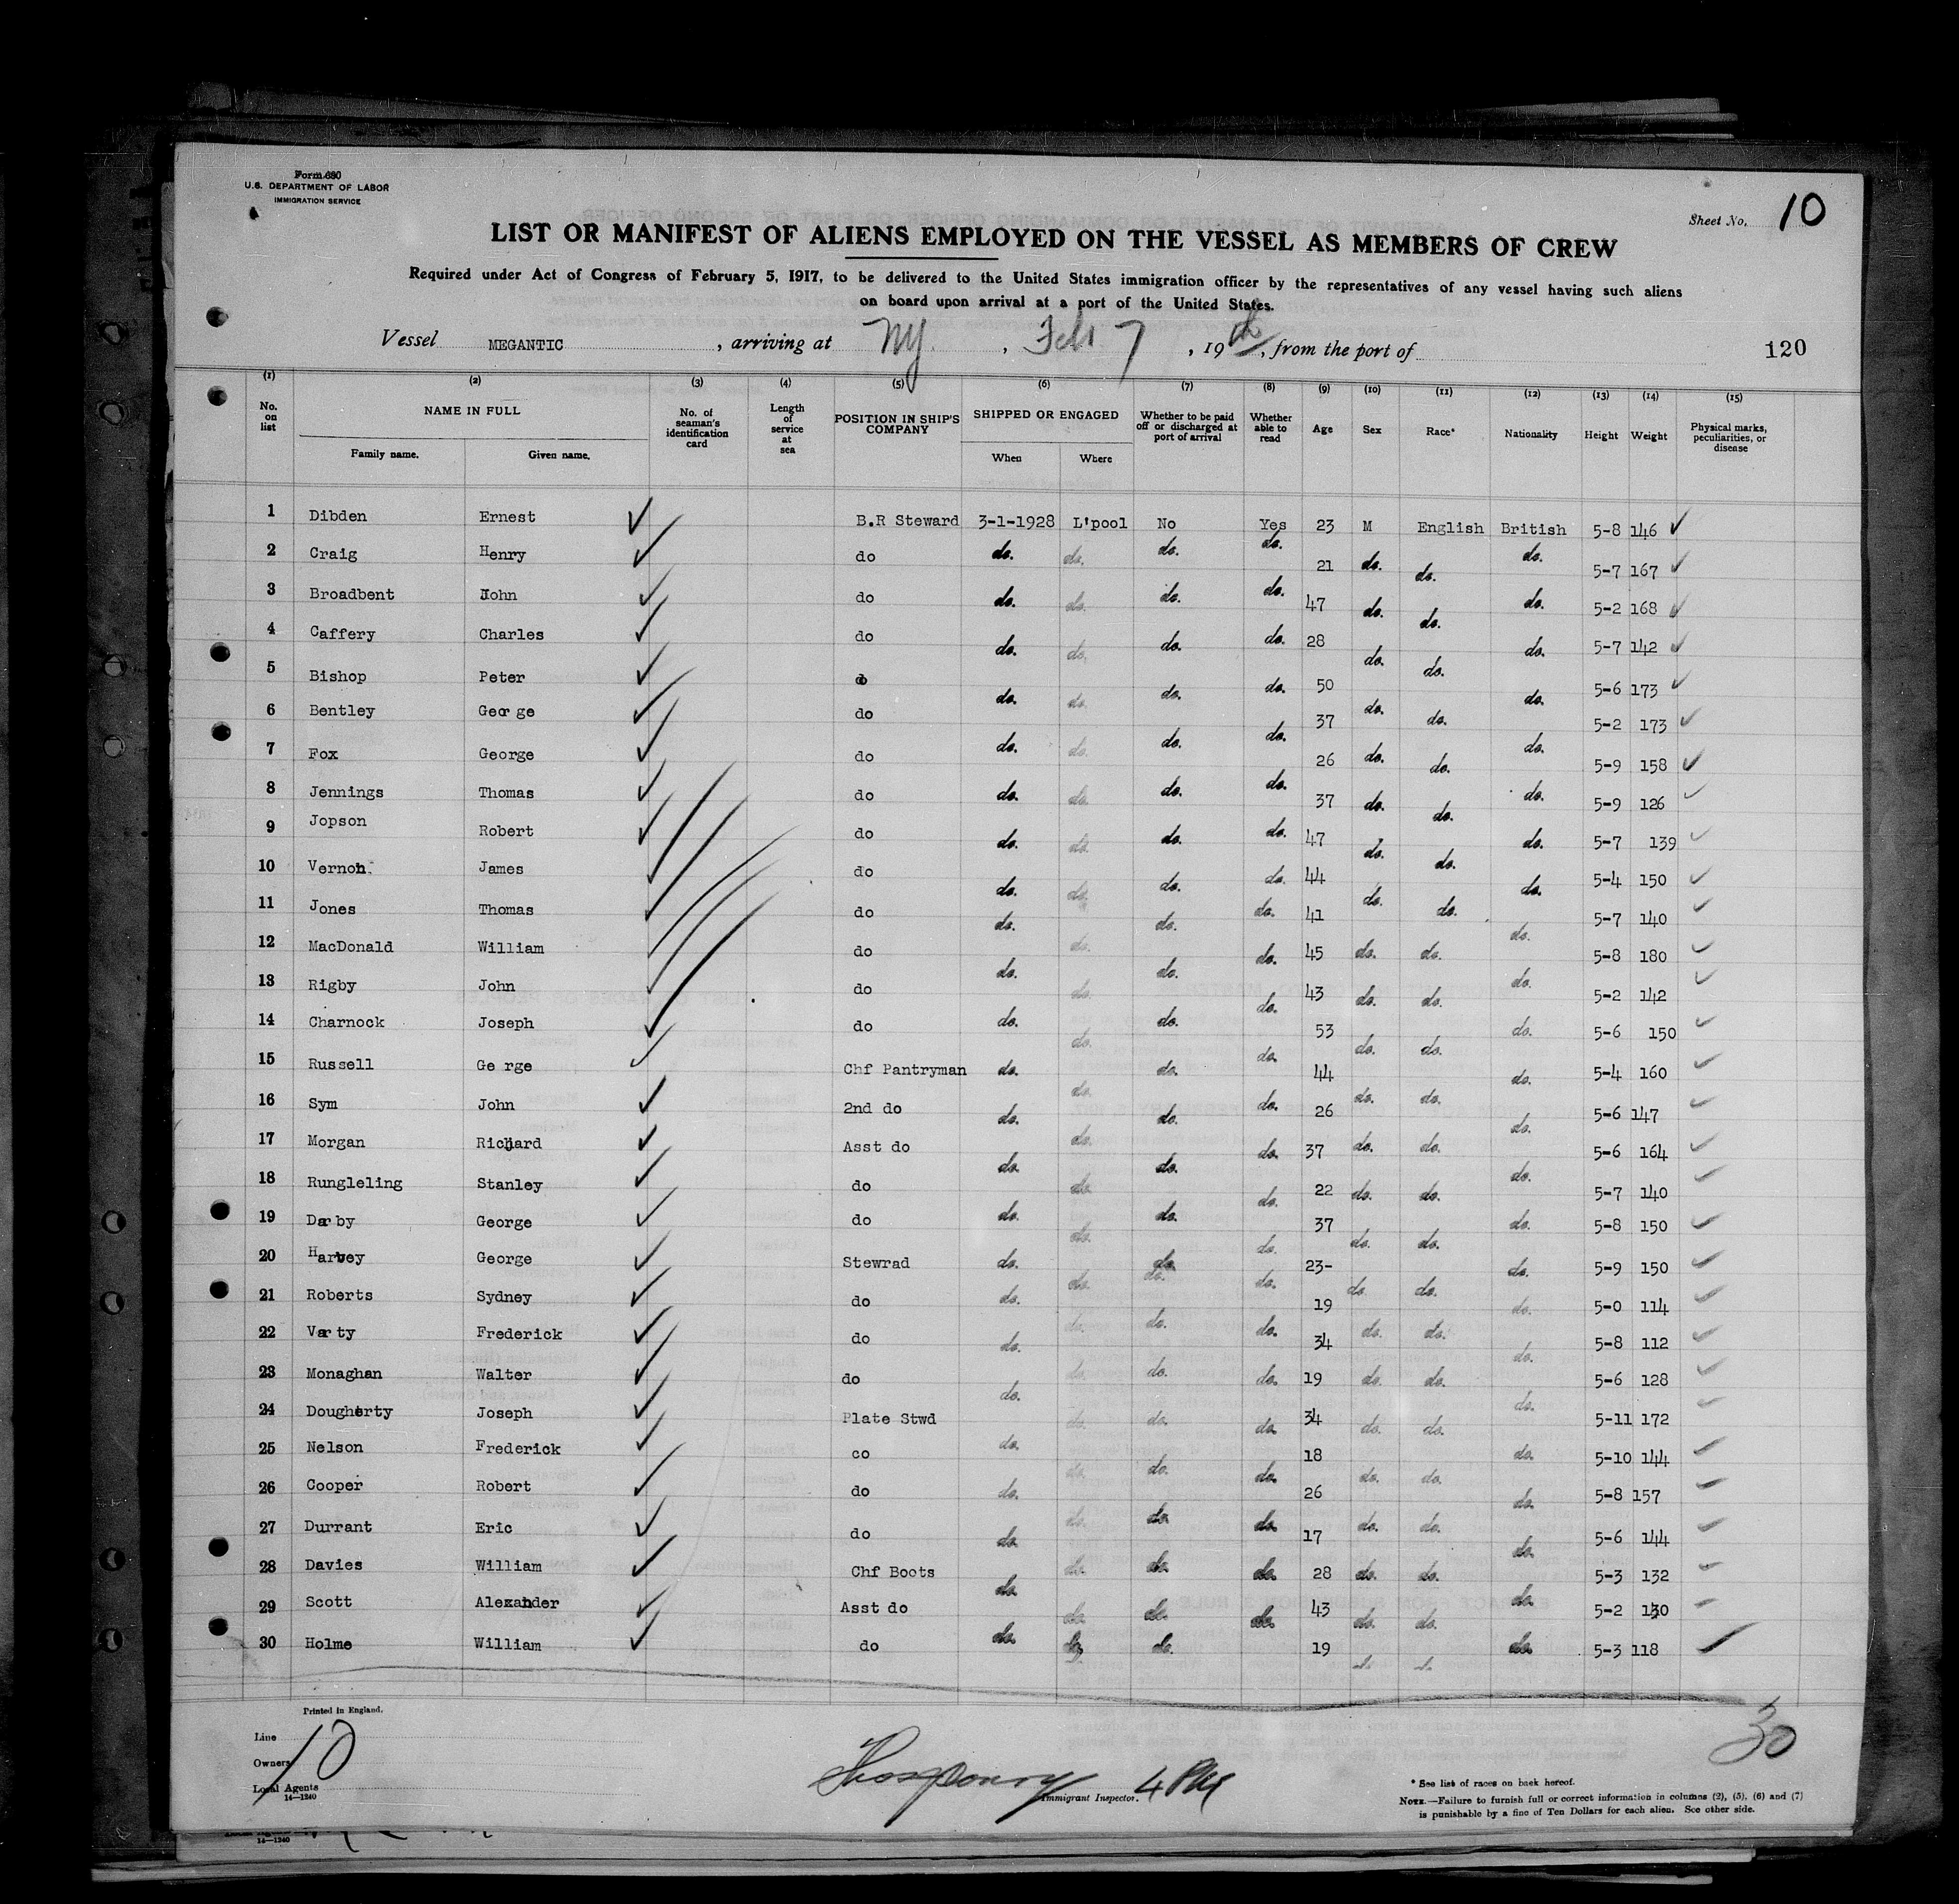 Form 680
U.S. DEPARTMENT OF LABOR
IMMIGRATION SERVICE
Sheet No. 10
LIST OR MANIFEST OF ALIENS EMPLOYED ON THE VESSEL AS MEMBERS OF CREW
Required under Act of Congress of February 5, 1917, to be delivered to the United States immigration officer by the representatives of any vessel having such aliens
on board upon arrival at a port of the United States.
Vessel MEGANTIC, arriving at NY., Feb 7th, 19, from the port of 120
(1) (2) (3) (4) (5) (6) (7) (8) (9) (10) (11) (12) (13) (14) (15)
No. on list NAME IN FULL Family name. Given name. No. of seaman's identification card Length of service at sea POSITION IN SHIP'S COMPANY SHIPPED OR ENGAGED When Where Whether to be paid off or discharged at port of arrival Whether able to read Age Sex Race* Nationality Height Weight Physical marks, peculiarities, or disease
1 Dibden Ernest B.R Steward 3-1-1928 L'pool No Yes 23 M English British 5-8 146
2 Craig Henry do do. do. do. do. 21 do. do. do. 5-7 167
3 Broadbent John do do. do. do. do. 47 do. do. do. 5-2 168
4 Caffery Charles do do. do. do. do. 28 do. do. do. 5-7 142
5 Bishop Peter do do. do. do. do. 50 do. do. do. 5-6 173
6 Bentley George do do. do. do. do. 37 do. do. do. 5-2 173
7 Fox George do do. do. do. do. 26 do. do. do. 5-9 158
8 Jennings Thomas do do. do. do. do. 37 do. do. do. 5-9 126
9 Jopson Robert do do. do. do. do. 47 do. do. do. 5-7 139
10 Vernon James do do. do. do. do. 44 do. do. do. 5-4 150
11 Jones Thomas do do. do. do. do. 41 do. do. do. 5-7 140
12 MacDonald William do do. do. do. do. 45 do. do. do. 5-8 180
13 Rigby John do do. do. do. do. 43 do. do. do. 5-2 142
14 Charnock Joseph do do. do. do. do. 53 do. do. do. 5-6 150
15 Russell Ge rge Chf Pantryman do. do. do. do. 44 do. do. do. 5-4 160
16 Sym John 2nd do do. do. do. do. 26 do. do. do. 5-6 147
17 Morgan Richard Asst do do. do. do. do. 37 do. do. do. 5-6 164
18 Rungleling Stanley do do. do. do. do. 22 do. do. do. 5-7 140
19 Darby George do do. do. do. do. 37 do. do. do. 5-8 150
20 Harvey George Stewrad do. do. do. do. 23- do. do. do. 5-9 150
21 Roberts Sydney do do. do. do. do. 19 do. do. do. 5-0 114
22 Varty Frederick do do. do. do. do. 34 do. do. do. 5-8 112
23 Monaghan Walter do do. do. do. do. 19 do. do. do. 5-6 128
24 Dougherty Joseph Plate Stwd do. do. do. do. 34 do. do. do. 5-11 172
25 Nelson Frederick co do. do. do. do. 18 do. do. do. 5-10 144
26 Cooper Robert do do. do. do. do. 26 do. do. do. 5-8 157
27 Durrant Eric do do. do. do. do. 17 do. do. do. 5-6 144
28 Davies William Chf Boots do. do. do. do. 28 do. do. do. 5-3 132
29 Scott Alexander Asst do do. do. do. do. 43 do. do. do. 5-2 130
30 Holme William do do. do. do. 19 do. do. do. 5-3 118
Printed in England.
Line
Owners
Local Agents
14—1240
10
Immigrant Inspector.
30
* See list of races on back hereof.
NOTE.—Failure to furnish full or correct information in columns (2), (5), (6) and (7)
is punishable by a fine of Ten Dollars for each alien. See other side.
14—1240